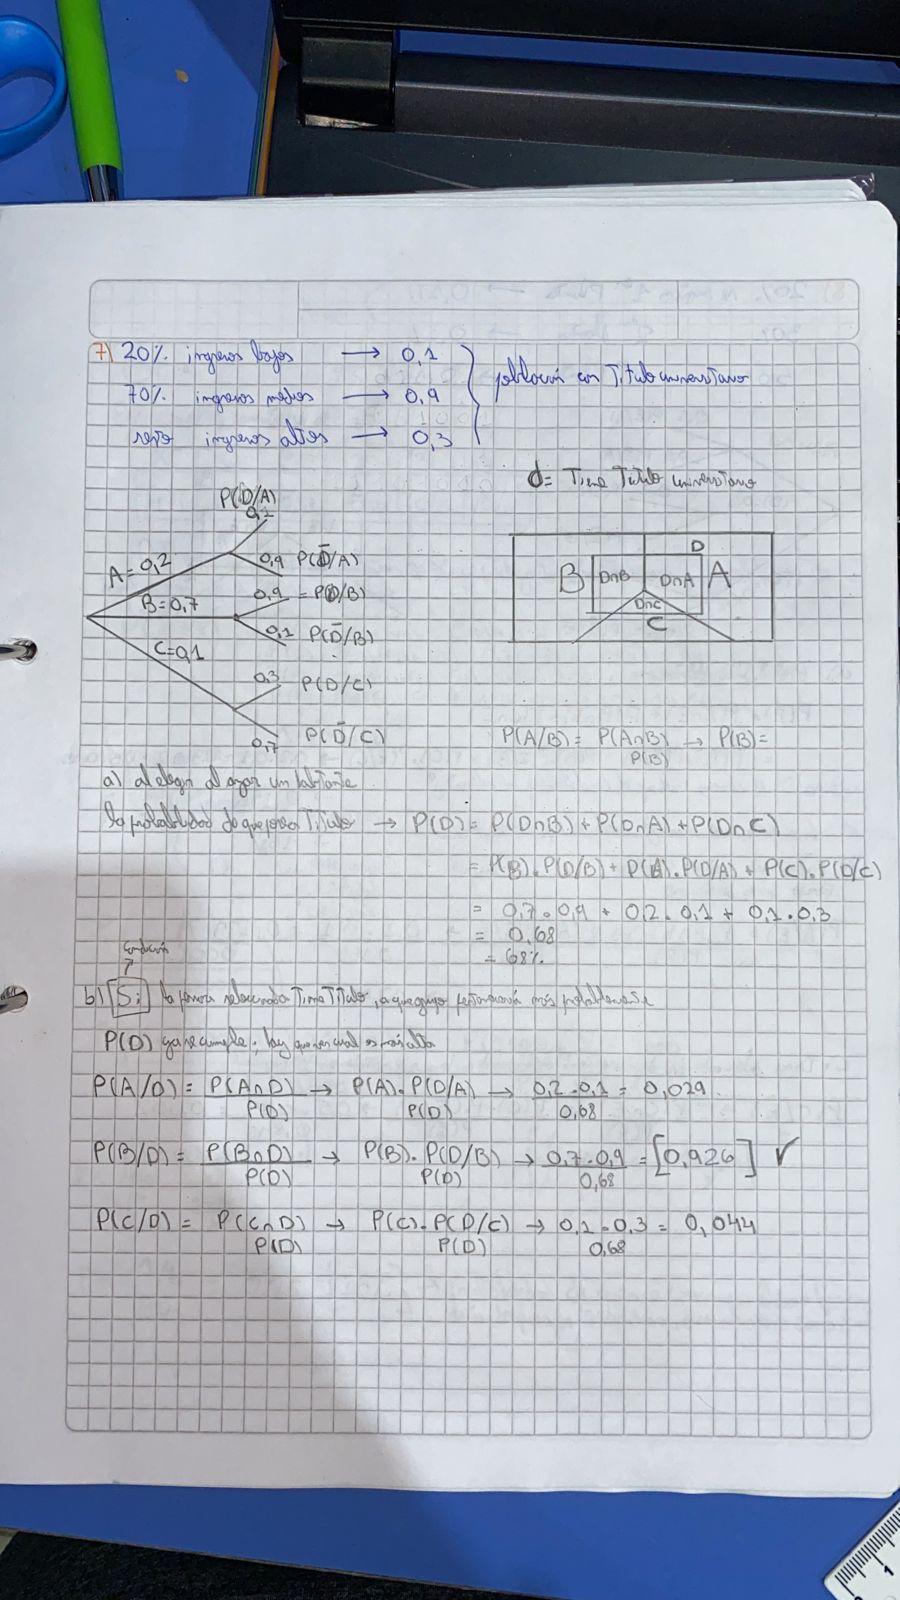 7) 20% ingresos bajos → 0,1
70% ingresos medios → 0,9
resto ingresos altos → 0,3
población con Titulo universitario
d = Tiene Titulo universitario
P(D/A)
0,1
A=0,2
0,9 P(D̄/A)
0,9 = P(D/B)
B=0,7
0,1 P(D̄/B)
C=0,1
0,3 P(D/C)
0,7 P(D̄/C)
D
B D∩B D∩A A
D∩C
C
P(A/B) = P(A∩B) → P(B)=
P(B)
a) al elegir al azar un habitante
la probabilidad de que posea Titulo → P(D) = P(D∩B) + P(D∩A) + P(D∩C)
= P(B).P(D/B) + P(A).P(D/A) + P(C).P(D/C)
= 0,7.0,9 + 0,2.0,1 + 0,1.0,3
= 0,68
= 68%
Condición
b) Si la persona seleccionada Tiene Titulo, a que grupo
P(D) ya se cumple, hay que ver cual
P(A/D) = P(A∩D) → P(A).P(D/A) → 0,2.0,1 = 0,029
P(D) P(D) 0,68
P(B/D) = P(B∩D) → P(B).P(D/B) → 0,7.0,9 = [0,926] ✓
P(D) P(D) 0,68
P(C/D) = P(C∩D) → P(C).P(D/C) → 0,1.0,3 = 0,044
P(D) P(D) 0,68